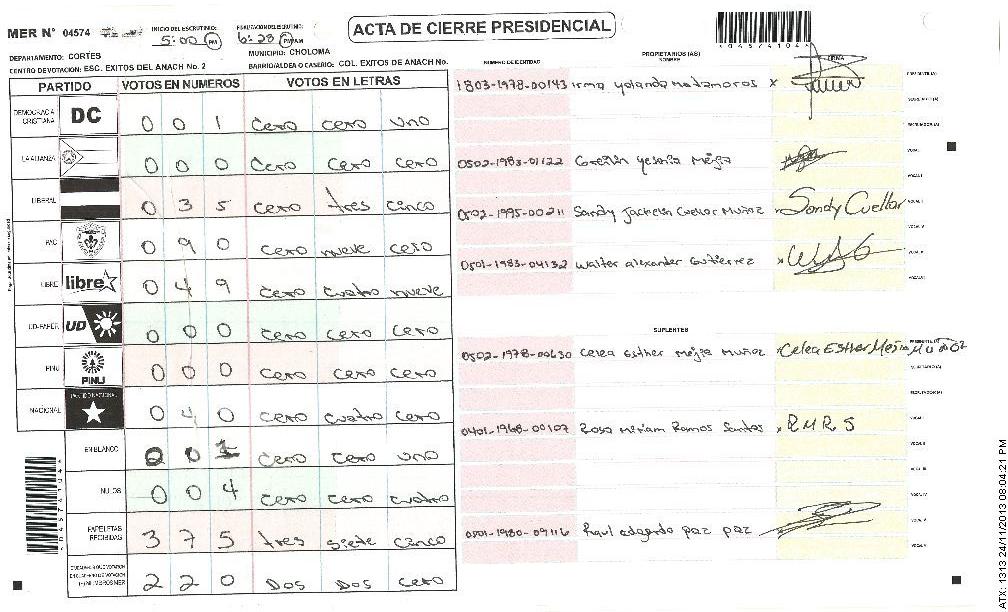 MER N° 04574
INICIO DEL ESCRUTINIO:
5:00 PM
FINALIZACION DEL ESCRUTINIO:
6:28 PM AM
ACTA DE CIERRE PRESIDENCIAL
DEPARTAMENTO: CORTES
MUNICIPIO: CHOLOMA
CENTRO DE VOTACION: ESC. EXITOS DEL ANACH No. 2
BARRIO/ALDEA O CASERIO: COL. EXITOS DE ANACH No.
PARTIDO VOTOS EN NUMEROS VOTOS EN LETRAS
DEMOCRACIA CRISTIANA DC 0 0 1 cero cero uno
LA ALIANZA 0 0 0 cero cero cero
LIBERAL 0 3 5 cero tres cinco
PAC 0 9 0 cero nueve cero
LIBRE libre 0 4 9 cero cuatro nueve
UD-FAPER UD 0 0 0 cero cero cero
PINU PINU 0 0 0 cero cero cero
NACIONAL PARTIDO NACIONAL 0 4 0 cero cuatro cero
EN BLANCO 0 0 1 cero cero uno
NULOS 0 0 4 cero cero cuatro
PAPELETAS RECIBIDAS 3 7 5 tres siete cinco
2 2 0 Dos Dos cero
NUMERO DE IDENTIDAD
PROPIETARIOS (AS)
NOMBRE
FIRMA
1803-1978-00143 irma yolanda matamoros x
PRESIDENTE (A)
0502-1983-01122 yesenia Mejia
0502-1995-00211 Sandy Jackelin Cuellar Muñoz Sandy Cuellar
0501-1983-04132 Walter alexander Gutierrez x
SUPLENTES
0502-1978-00630 Celea Esther Mejia Muñoz Celea Esther Mejia Muñoz
0401-1968-00107 Rosa Miriam Ramos Santos R.M.R.S
0501-1980-09116 Raul edgardo paz paz
ATX: 1313 24/11/2013 08:04:21 PM